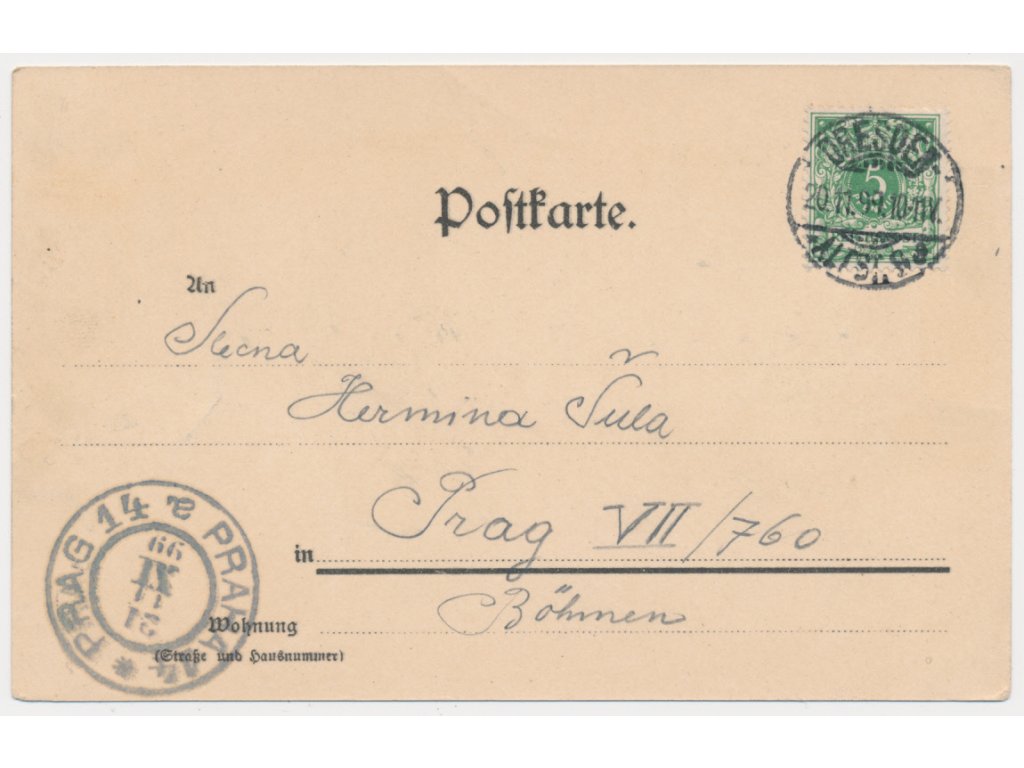 Postkarte.
DRESDEN
5
20.11.99.10-11V.
ALTST.
An
Slecna
Hermina Šula
Prag VII/760
in
Böhmen
Wohnung
(Straße und Hausnummer)
PRAG 14 e PRAHA 14
21
11
XI
99